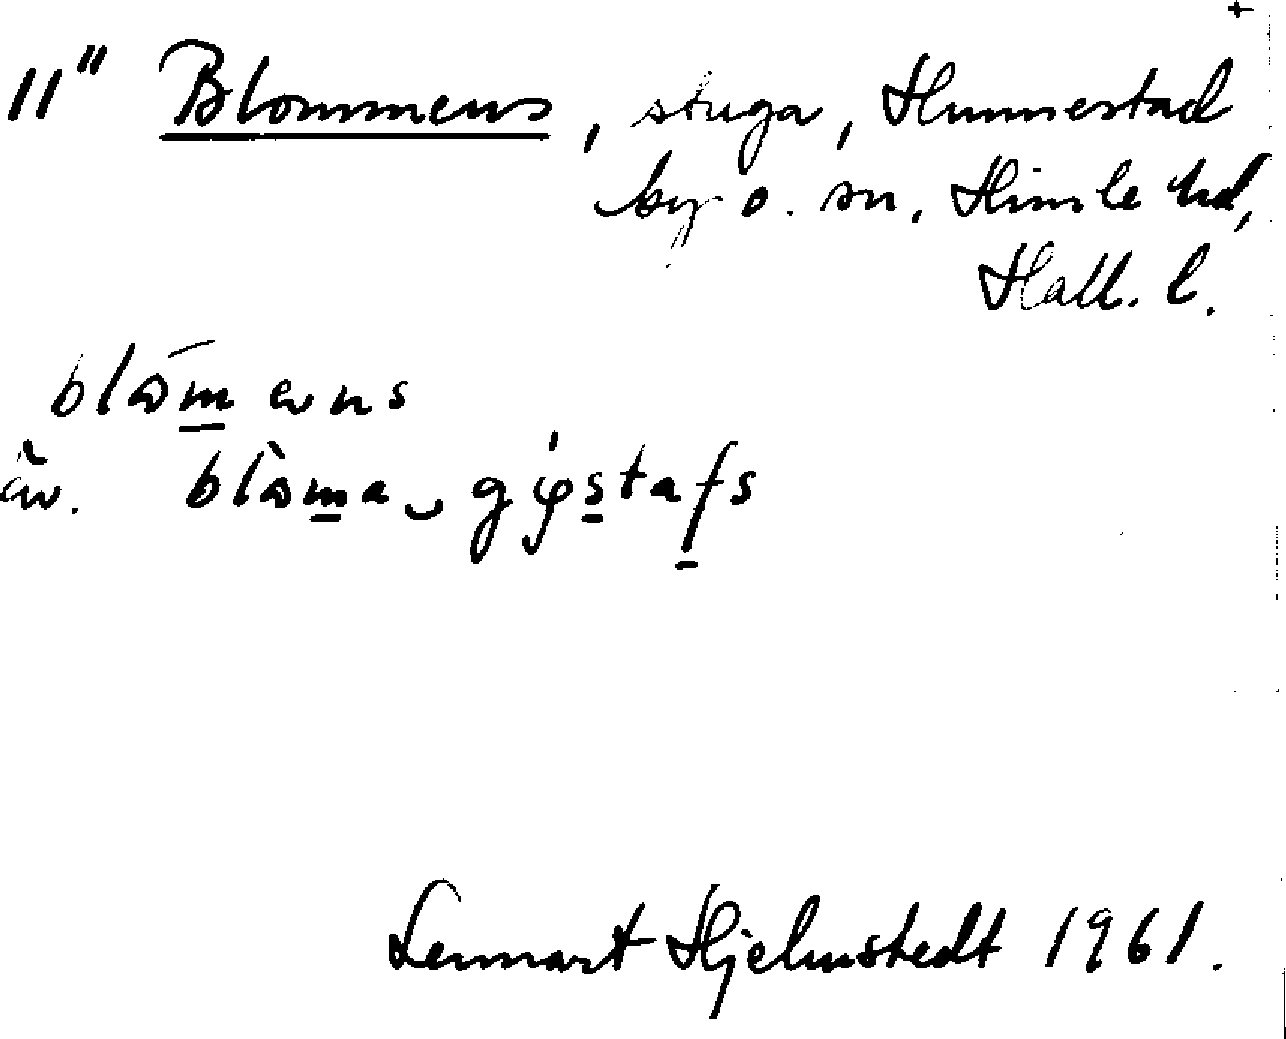 11" Blommens, stuga, Hunnestad
by o. sn, Himle hd,
Hall. l.
blåmens
äv. blåma‿gøstafs
Lennart Hjelmstedt 1961.